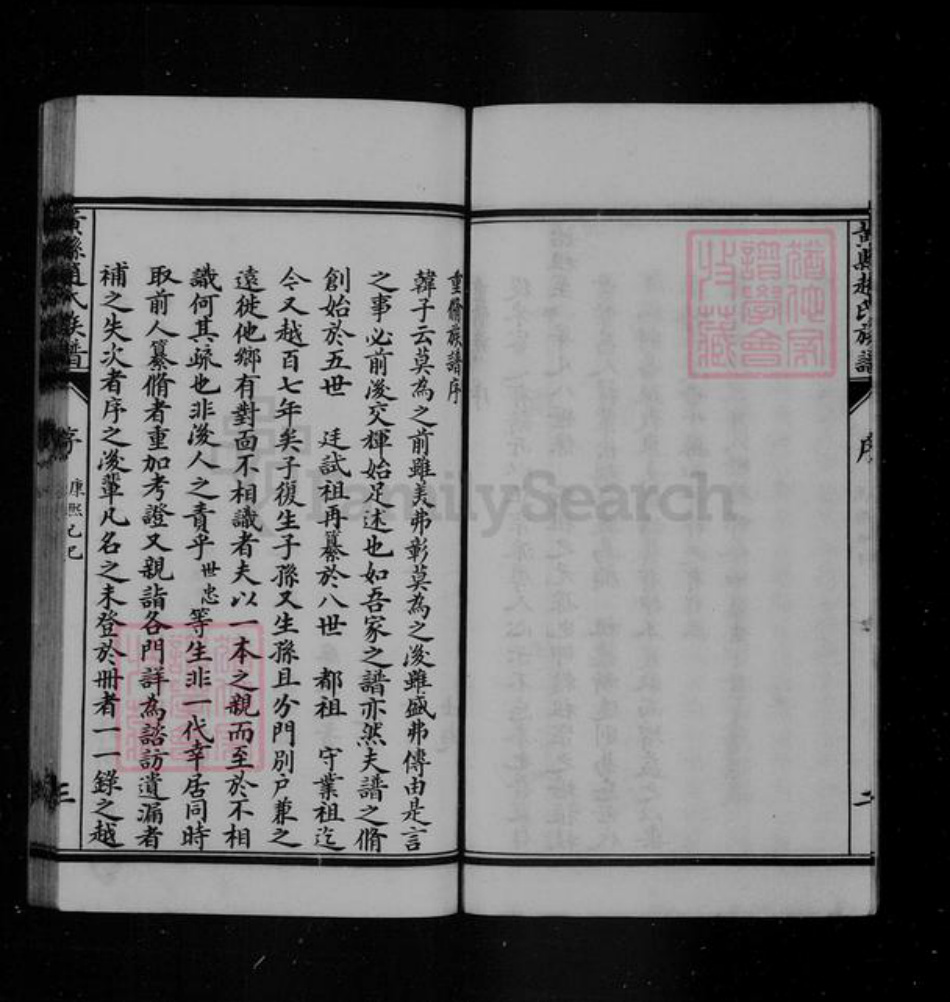 黃縣趙氏族譜
序
二
遊他家譜學會收藏
重脩族譜序
韓子云莫為之前雖美弗彰莫為之後雖盛弗傳由是言
之事必前後交輝始足述也如吾家之譜亦然夫譜之脩
創始於五世 廷試祖再纂於八世 都祖 守業祖迄
今又越百七年矣子復生子孫又生孫且分門別户兼之
遠徙他鄉有對面不相識者夫以一本之親而至於不相
識何其疏也非後人之責乎世忠等生非一代幸居同時
取前人纂脩者重加考證又親詣各門詳為諮訪遺漏者
補之失次者序之後輩凡名之未登於冊者一一錄之越
黃縣趙氏族譜
序
康熙己巳
三
FamilySearch